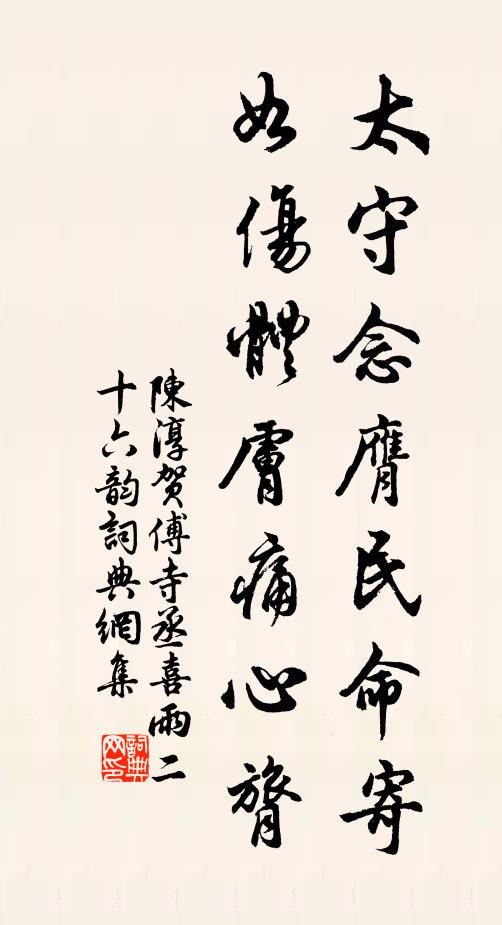 太守念膺民命寄
如傷體膚痛心膂
陳淳賀傅寺丞喜雨二
十六韵詞典網集
詞典
网印